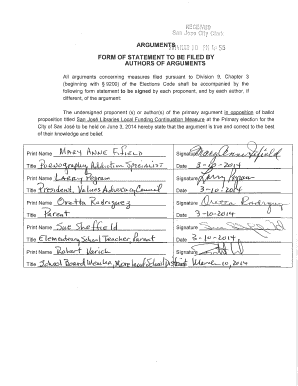 RECEIVED
San Jose City Clerk
ARGUMENTS
FORM OF STATEMENT TO BE FILED BY
AUTHORS OF ARGUMENTS
All arguments concerning measures filed pursuant to Division 9, Chapter 3
(beginning with § 9200) of the Elections Code shall be accompanied by the
following form statement to be signed by each proponent, and by each author, if
different, of the argument:
The undersigned proponent (s) or author(s) of the primary argument in opposition of ballot
proposition titled San José Libraries Local Funding Continuation Measure at the Primary election for the
City of San José to be held on June 3, 2014 hereby state that the argument is true and correct to the best
of their knowledge and belief.
Print Name MARY ANNE FIFIELD Signature Mary Anne Fifield
Title Pornography Addiction Specialist Date 3-10-2014
Print Name LARRY Pegram Signature Larry Pegram
Title President, Values Advocacy Council Date 3-10-2014
Print Name Oretta Rodriguez Signature Oretta Rodriguez
Title Parent Date 3-10-2014
Print Name Sue Sheffield Signature
Title Elementary School Teacher, Parent Date 3-10-2014
Print Name Robert Varich Signature
Title School Board Member, Moreland School District Date March 10, 2014